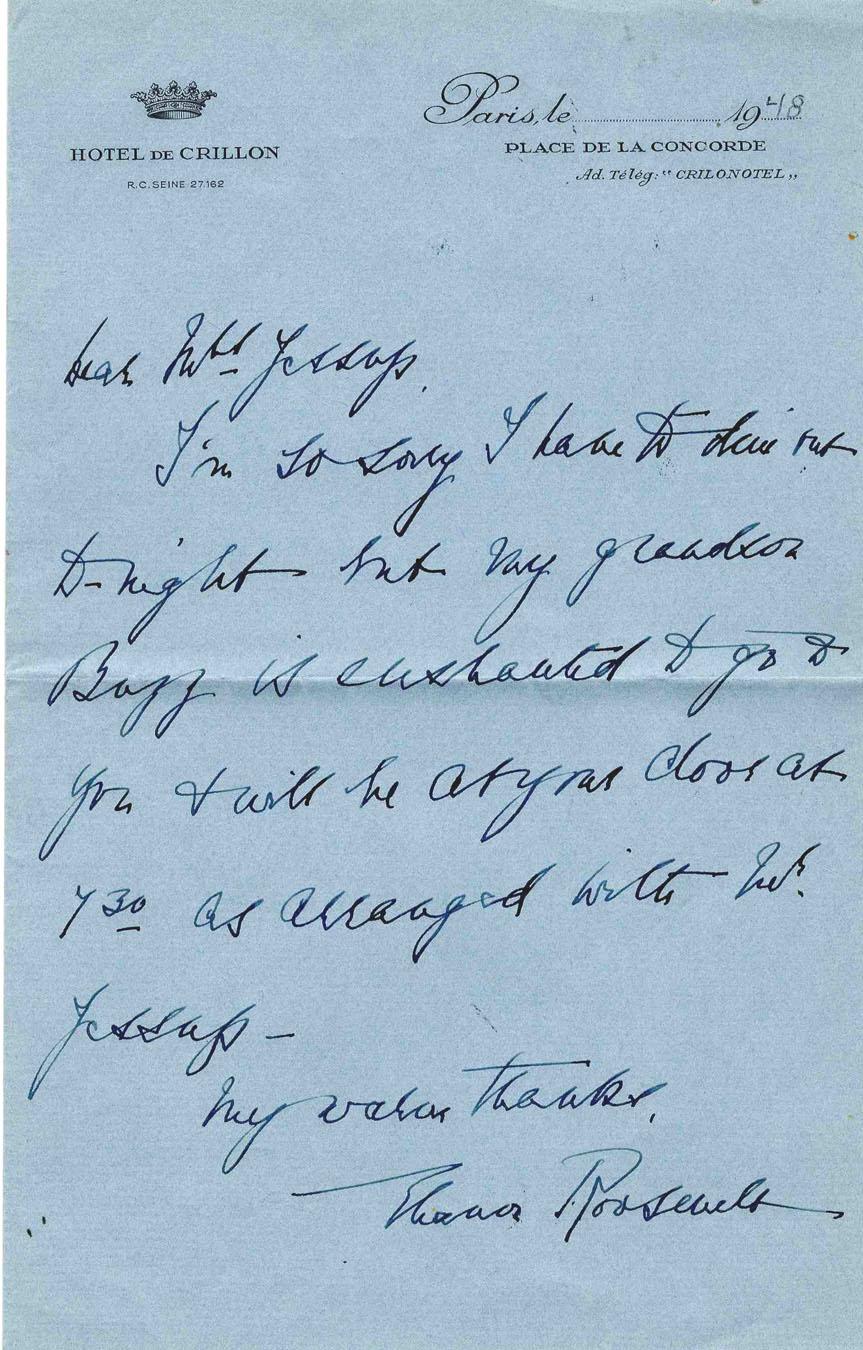 HOTEL DE CRILLON
R.C. SEINE 27.162
Paris, le 1948
PLACE DE LA CONCORDE
Ad. Télég: "CRILONOTEL"
Dear Mrs Jessup,
I'm so sorry I have to dine out
to-night but my grandson
Buzz is enchanted to go to
you & will be at your door at
7 30 as arranged with Mr.
Jessup –
My warm thanks,
Eleanor Roosevelt